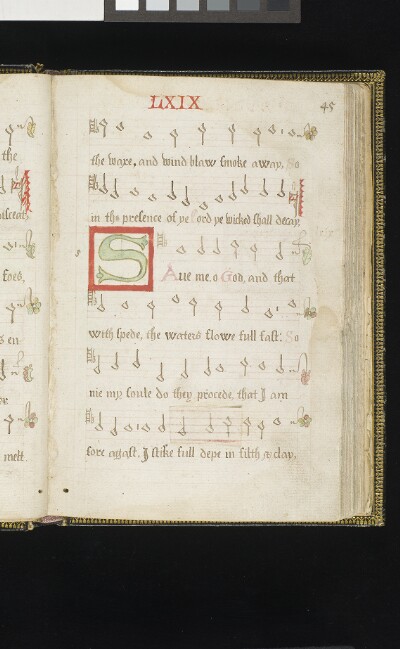 the
foes,
melt.
LXIX
45
the waxe, and wind blaw smoke away, So
in ths presence of ye Lord ye wicked shall decay.
S Aue me, o God, and that
with spede, the waters flowe full fast: So
nie my soule do they procede, that I am
sore agast. I stike full depe in filth & clay,